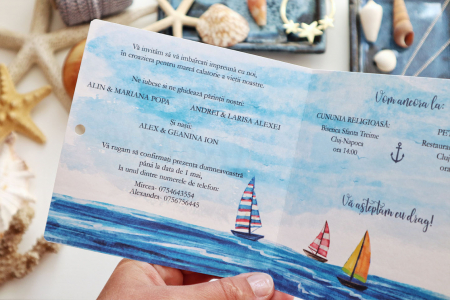 Vă invităm să vă îmbarcați împreună cu noi,
în croaziera pentru marea calatorie a vieții noastre.
Ne iubesc și ne ghidează părinții noștri:
ALIN & MARIANA POPA
ANDREI & LARISA ALEXEI
Și nașii:
ALEX & GEANINA ION
Vă rugăm să confirmați prezenta dumneavoastră
până la data de 1 mai,
la unul dintre numerele de telefon:
Mircea- 0754643554
Alexandra- 0756756445
Vom ancora la:
CUNUNIA RELIGIOASĂ:
Biserica Sfanta Treime
Cluj-Napoca
ora 14:00
Restaurant
Cluj
ora
Vă așteptăm cu drag!